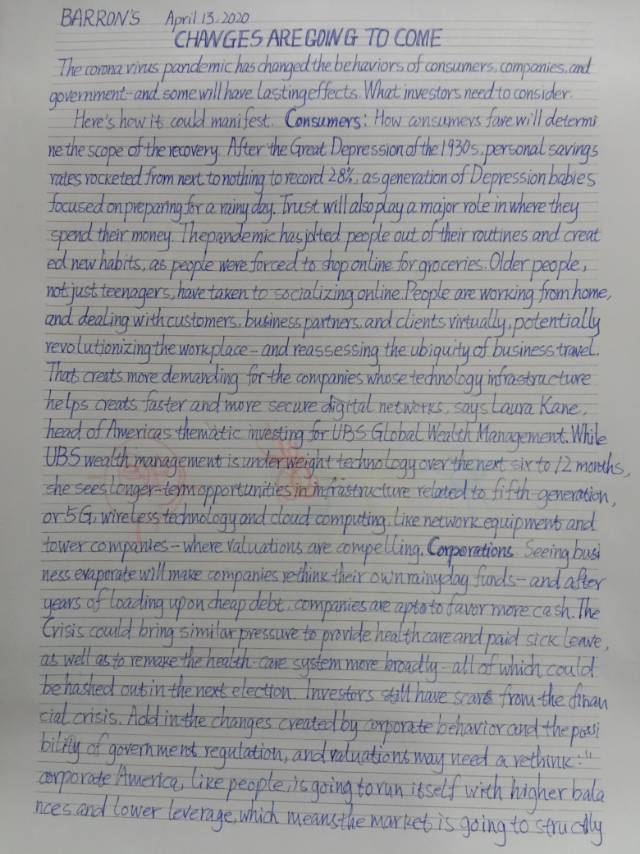 BARRON'S April 13. 2020
CHANGES ARE GOING TO COME
The corona virus pandemic has changed the behaviors of consumers, companies, and
government-and some will have lasting effects. What investors need to consider.
Here's how it could manifest. Consumers: How consumers fare will determi
ne the scope of the recovery. After the Great Depression of the 1930s, personal savings
rates rocketed from next to nothing to record 28%, as generation of Depression babies
focused on preparing for a rainy day. Trust will also play a major role in where they
spend their money. The pandemic has jolted people out of their routines and creat
ed new habits, as people were forced to shop online for groceries. Older people,
not just teenagers, have taken to socializing online. People are working from home,
and dealing with customers, business partners, and clients virtually, potentially
revolutionizing the workplace-and reassessing the ubiquity of business travel.
That creats more demanding for the companies whose technology infrastructure
helps creats faster and more secure digital networks, says Laura Kane,
head of Americas thematic investing for UBS Global Wealth Management. While
UBS wealth management is underweight technology over the next six to 12 months,
she sees longer-term opportunities in infrastructure related to fifth-generation,
or 5G, wireless technology and cloud computing, like network equipment and
tower companies-where valuations are compelling. Corporations Seeing busi
ness evaporate will make companies rethink their own rainyday funds-and after
years of loading up on cheap debt, companies are apt to to favor more cash. The
Crisis could bring similar pressure to provide health care and paid sick leave,
as well as to remake the health-care system more broadly-all of which could
be hashed out in the next election. Investors still have scars from the finan
cial crisis. Add in the changes created by corporate behavior and the possi
bility of government regulation, and valuations may need a rethink: "
corporate America, like people, is going to run itself with higher bala
nces and lower leverage, which means the market is going to